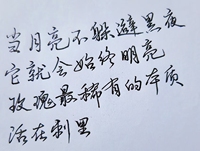 当月亮不躲避黑夜
它就会始终明亮
玫瑰最稀有的本质
活在刺里